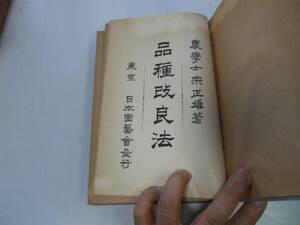 農學士宗正雄著
品種改良法
東京 日本園藝會發行